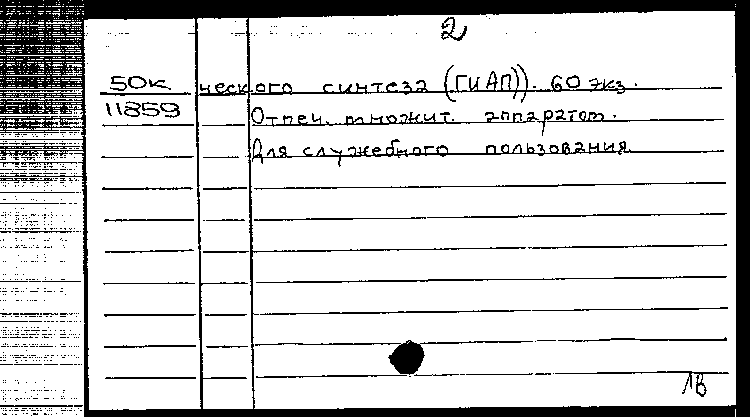 2
50к ческого синтеза (ГИАП)). 60 экз.
11859 Отпеч. множит. аппаратом.
Для служебного пользования
1В